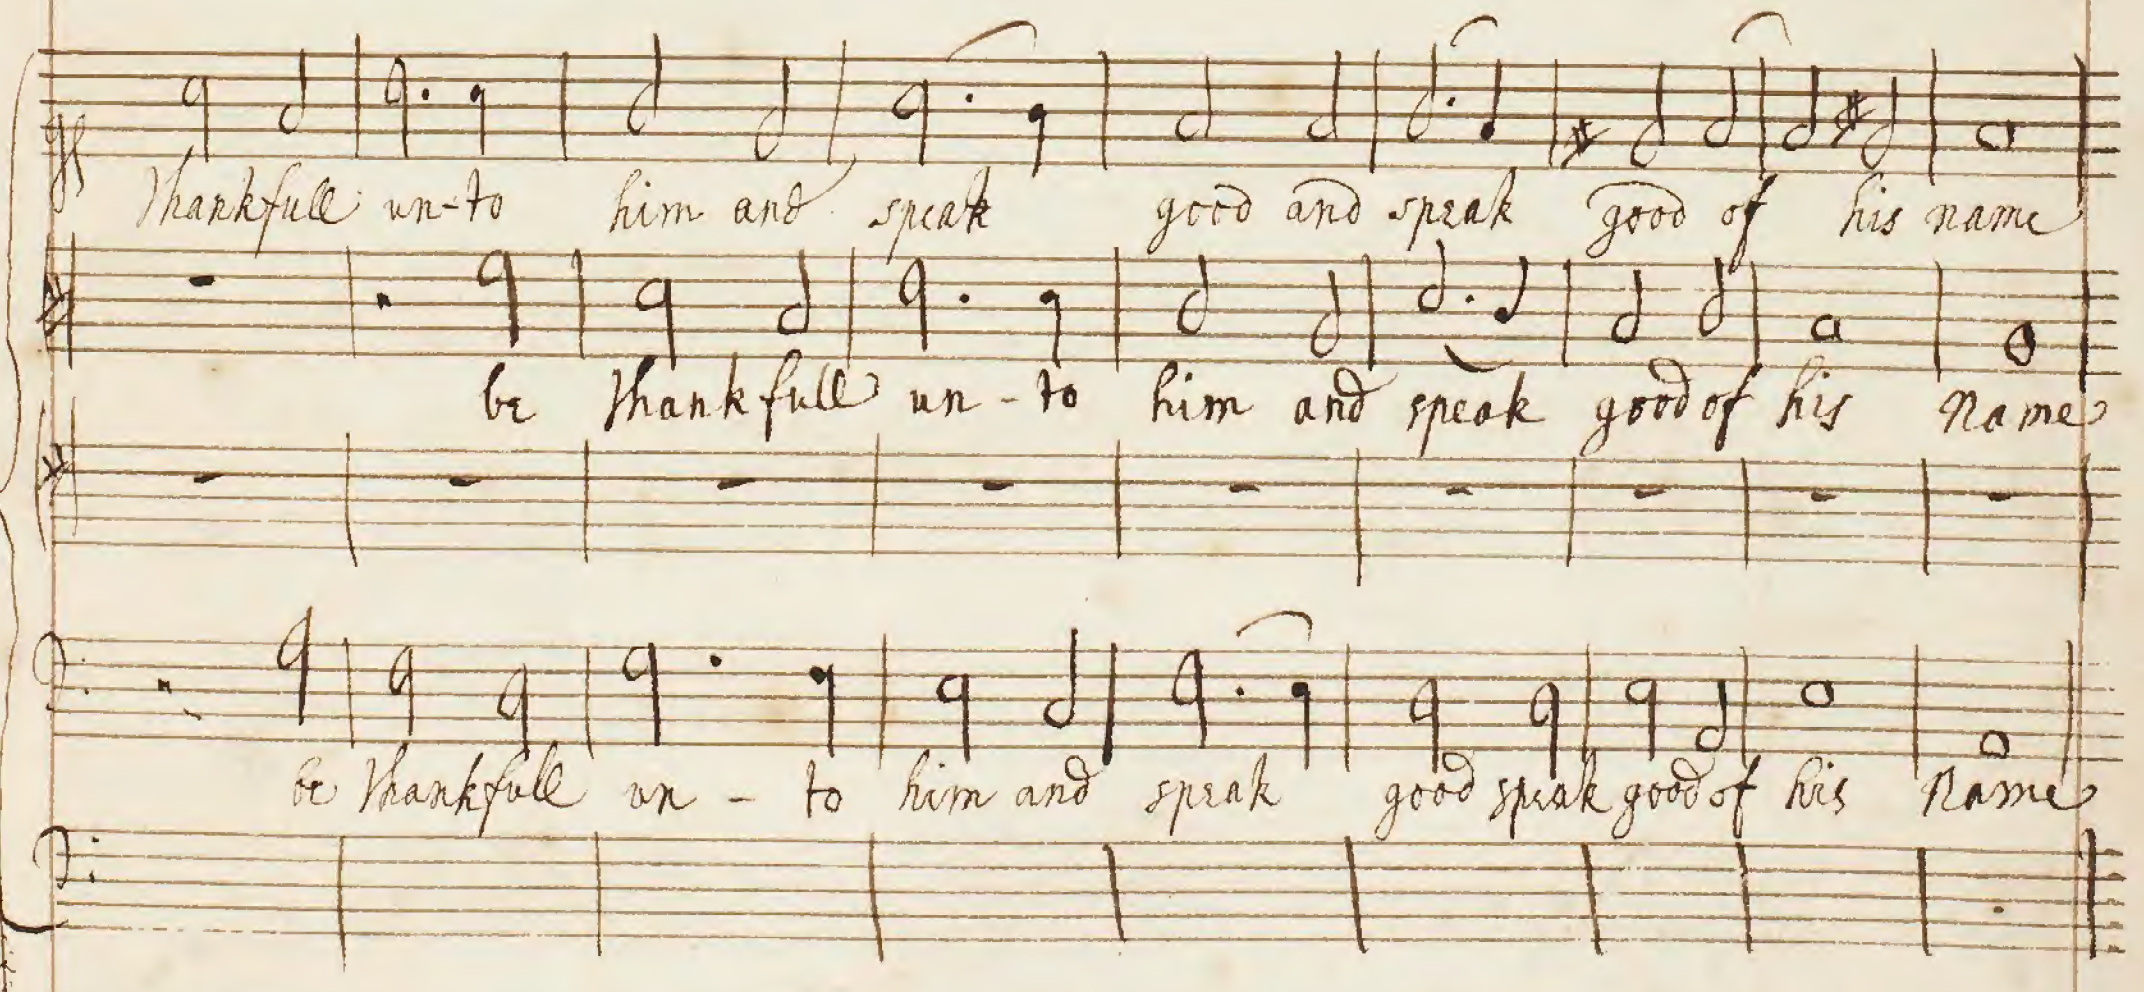 Thankfull un-to him and speak good and speak good of his name
be Thankfull un-to him and speak good of his Name
be Thankfull un-to him and speak good speak good of his Name